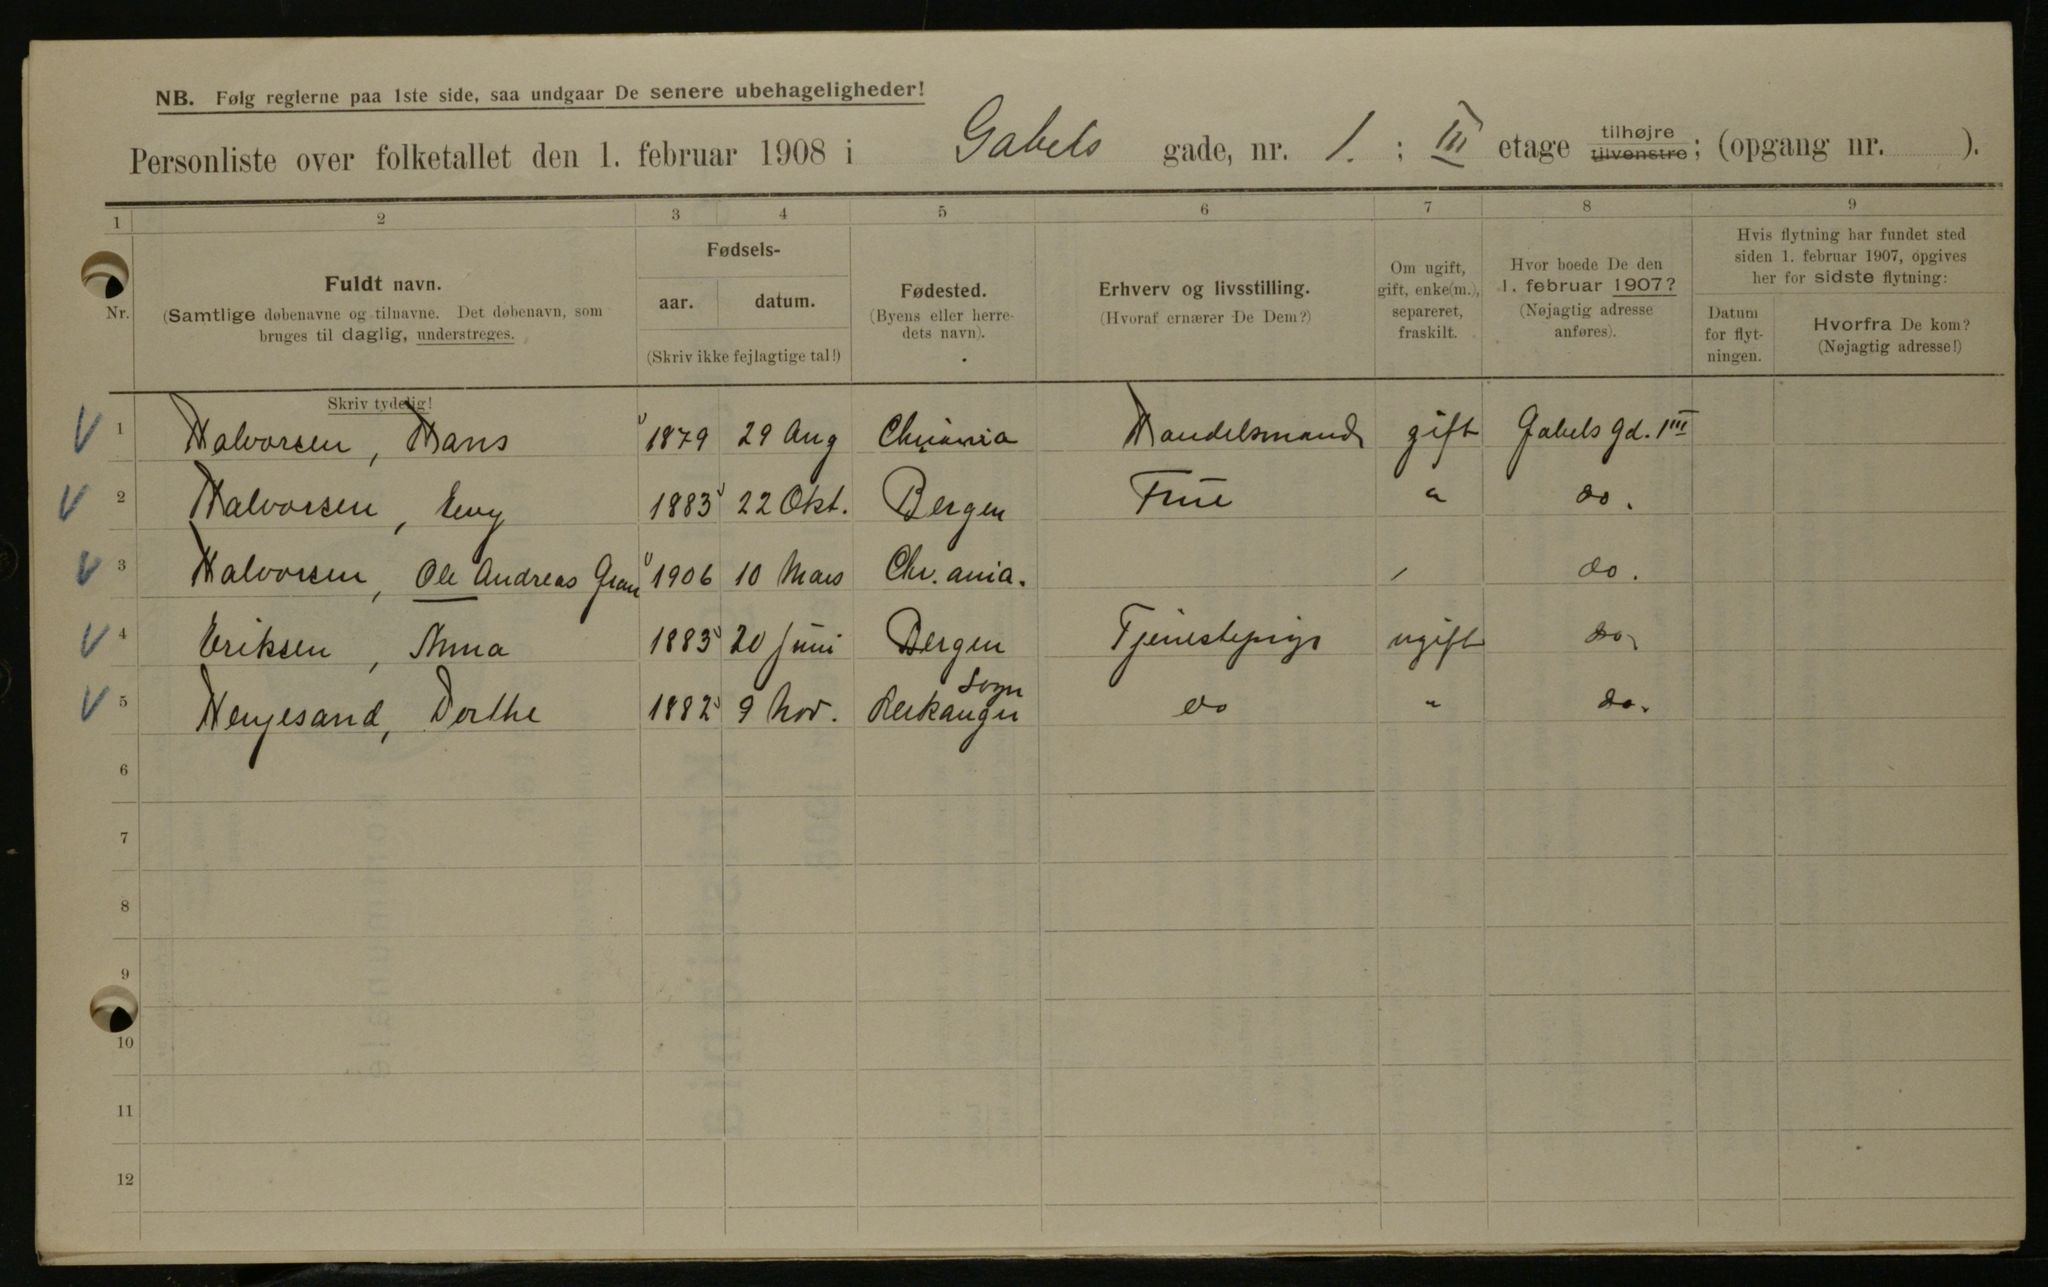 NB. Følg reglerne paa 1ste side, saa undgaar De senere ubehageligheder!
Personliste over folketallet den 1. februar 1908 i Gabels gade, nr. 1. ; III etage tilhøjre tilvenstre; (opgang nr. ).
1 2 3 4 5 6 7 8 9
Nr.
Fuldt navn.
(Samtlige døbenavne og tilnavne. Det døbenavn, som
bruges til daglig, understreges.
Skriv tydelig!
Fødsels-
aar. datum.
(Skriv ikke fejlagtige tal!)
Fødested.
(Byens eller herre-
dets navn).
Erhverv og livsstilling.
(Hvoraf ernærer De Dem?)
Om ugift,
gift, enke(m.),
separeret,
fraskilt.
Hvor boede De den
1. februar 1907?
(Nøjagtig adresse
anføres).
Hvis flytning har fundet sted
siden 1. februar 1907, opgives
her for sidste flytning:
Datum
for flyt-
ningen.
Hvorfra De kom?
(Nøjagtig adresse!)
V 1 Halvorsen, Hans 1879 29 Aug Chriania Handelsmand gift Gabels Gd. 1 III
V 2 Halvorsen, 1883 22 Okt. Bergen Frue " do.
V 3 Halvorsen, Ole Andreas Gran 1906 10 Mars Chr.ania. / do.
V 4 Eriksen, Anna 1883 20 Juni Bergen Tjenestepige ugift do
V 5 Dorthe 1882 9 Nov. Sogn do " do.
6
7
8
9
10
11
12